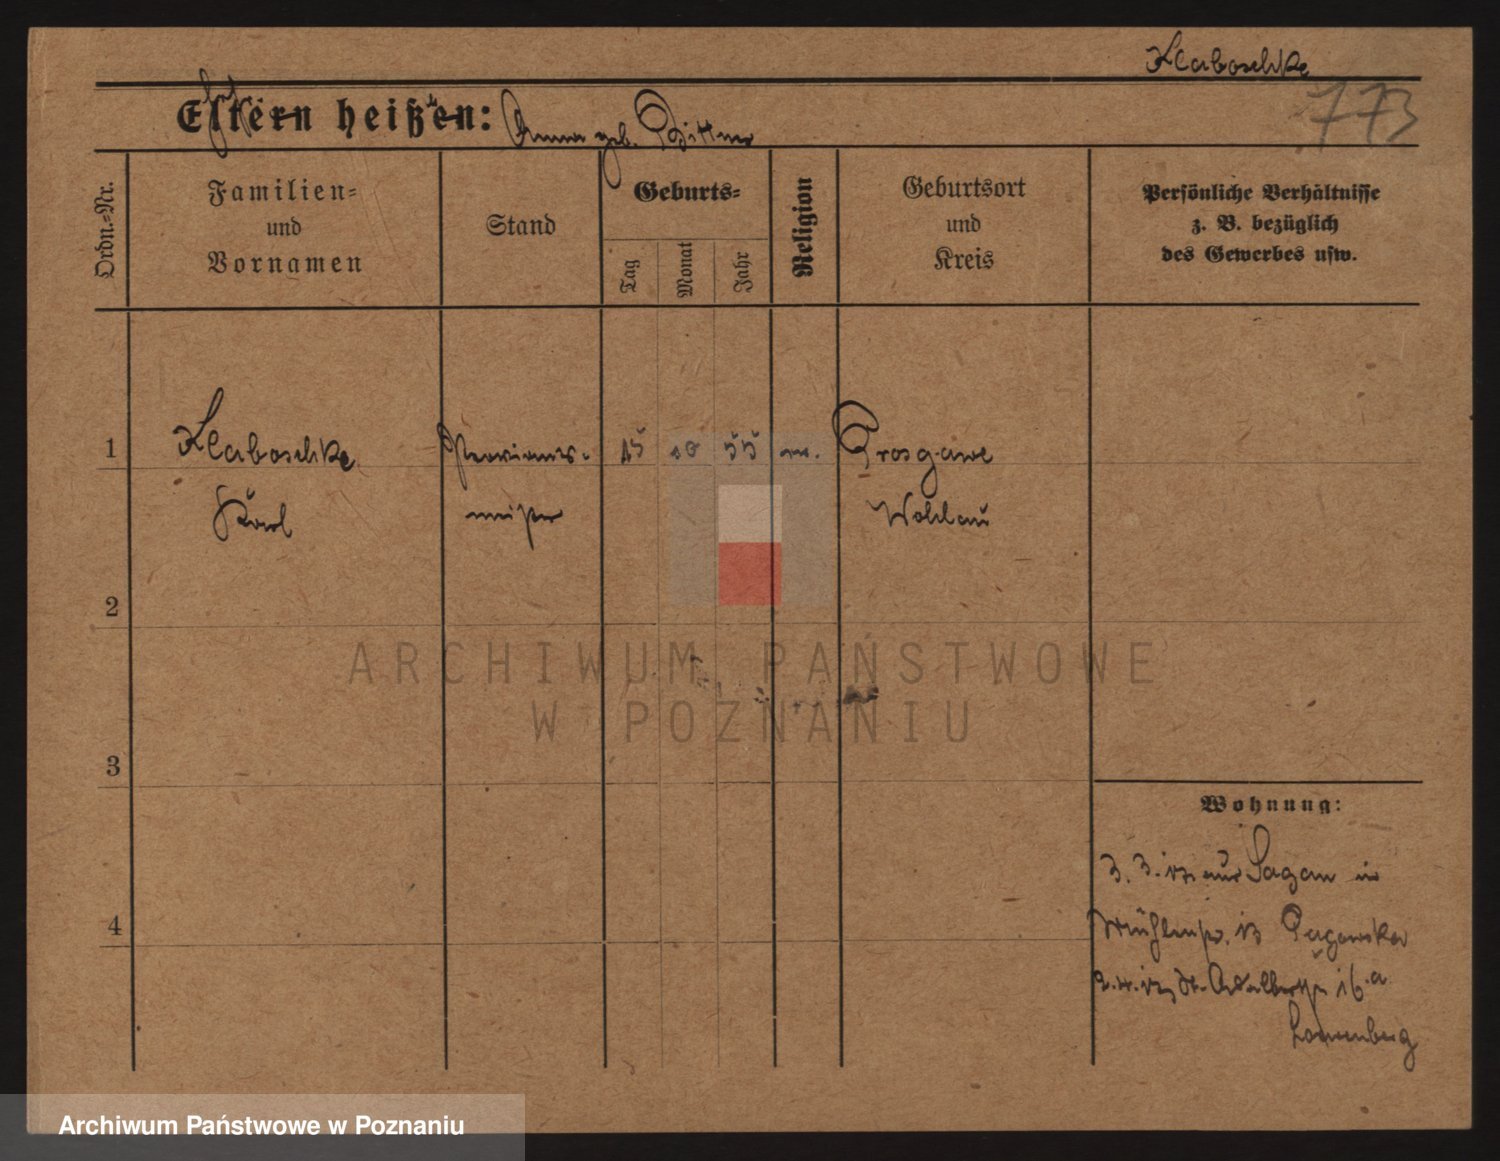 Klaboschke
773
Eltern heißen: Anna geb. Bittner
Ordn.-Nr.
Familien-
und
Vornamen
Stand
Geburts-
Tag
Monat
Jahr
Religion
Geburtsort
und
Kreis
Persönliche Verhältnisse
z. B. bezüglich
des Gewerbes usw.
1
Klaboschke
Karl
15 10 55
Prosgawe
Wohlau
meister
2
ARCHIWUM PAŃSTWOWE
W POZNANIU
3
Wohnung:
3. 3. aus Sagan in
4
Mühlenstr. 13
St. Adalbertstr 16a
Archiwum Państwowe w Poznaniu